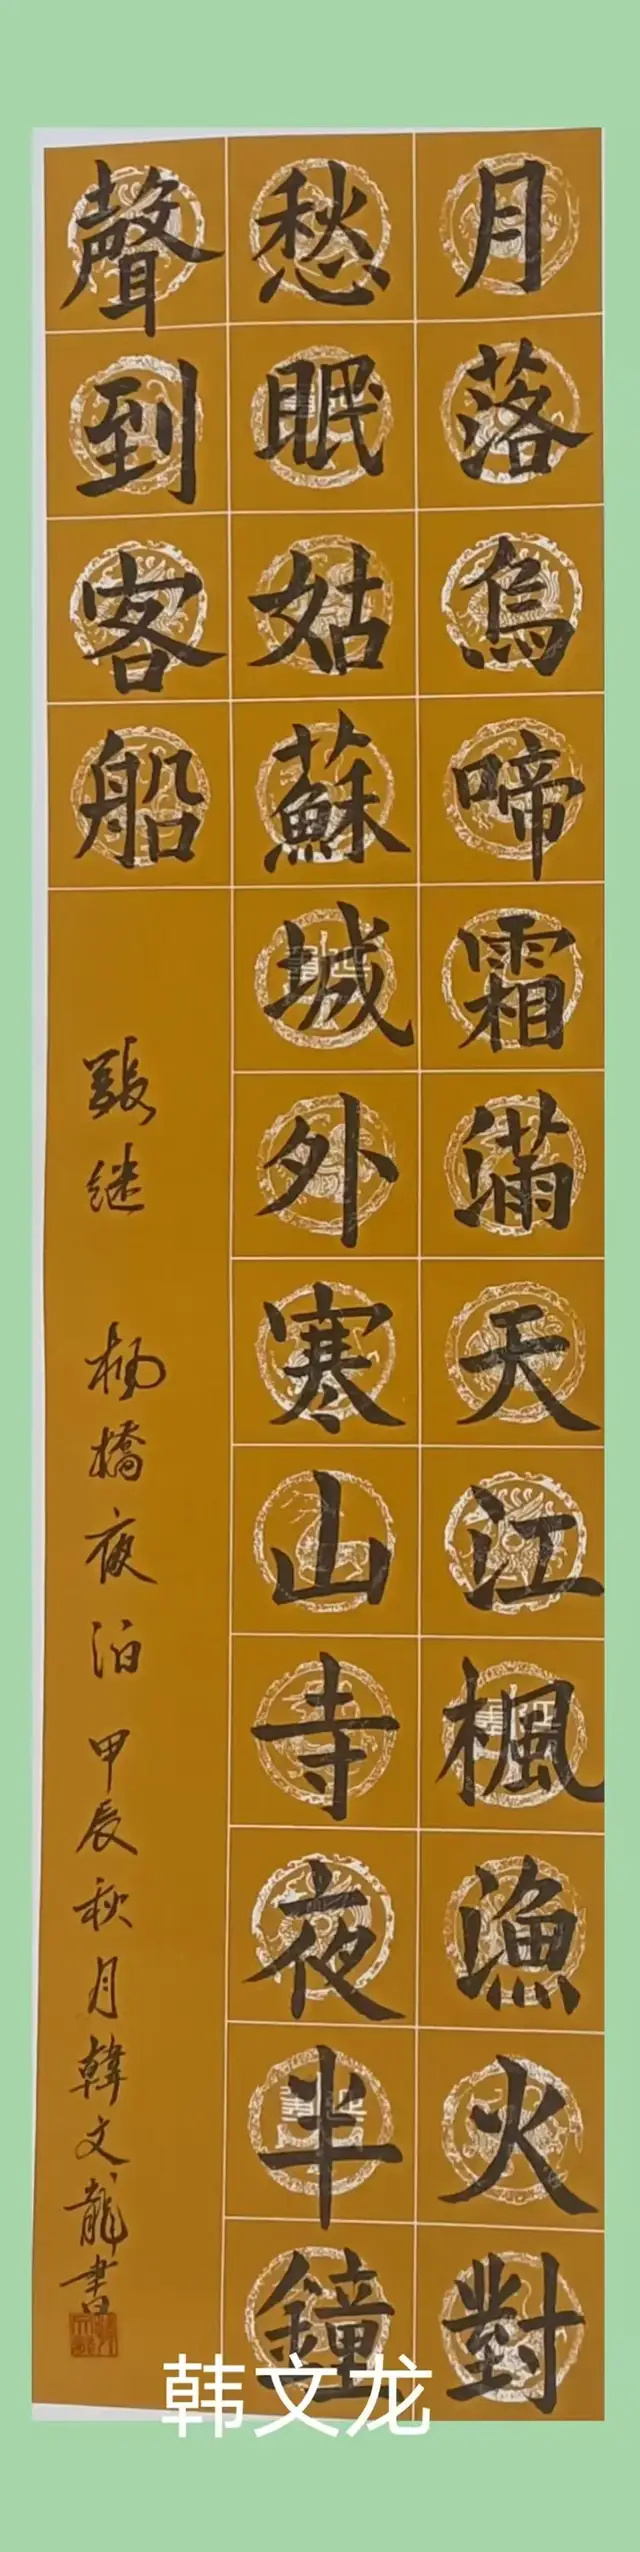 月落烏啼霜滿天江楓漁火對
愁眠姑蘇城外寒山寺夜半鐘
聲到客船
張继 楊橋夜泊 甲辰秋月韓文龍書
韩文龙